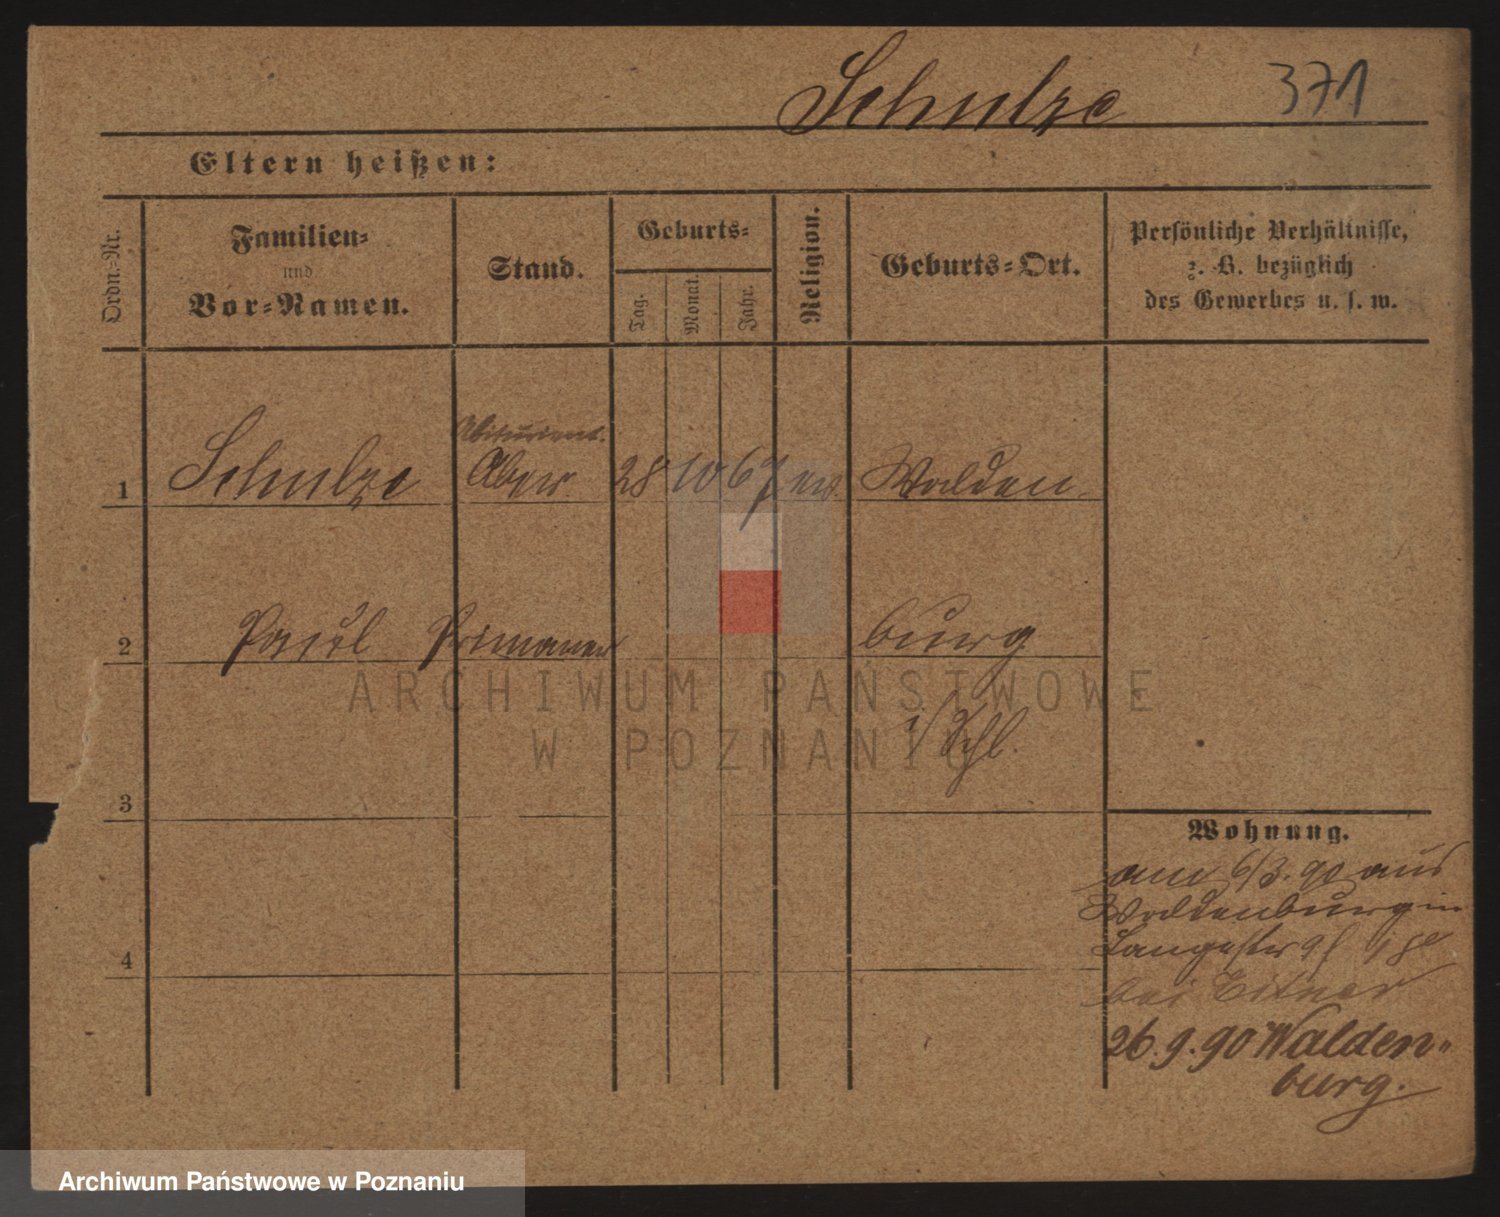 Schulze 371
Eltern heißen:
Ordn.-Nr.
Familien-
und
Vor-Namen.
Stand.
Geburts-
Tag.
Monat.
Jahr.
Religion.
Geburts-Ort.
Persönliche Verhältnisse,
z. B. bezüglich
des Gewerbes u. s. w.
Abiturient.
1 Schulze 28 10 67 ev. Walden
2 Paul Primaner burg
i/Schl.
3
4
Wohnung.
am 6/3. 90 aus
Waldenburg in
Langestr
bei Eitner
26.9.90 Walden-
burg.
ARCHIWUM PAŃSTWOWE
W POZNANIU
Archiwum Państwowe w Poznaniu